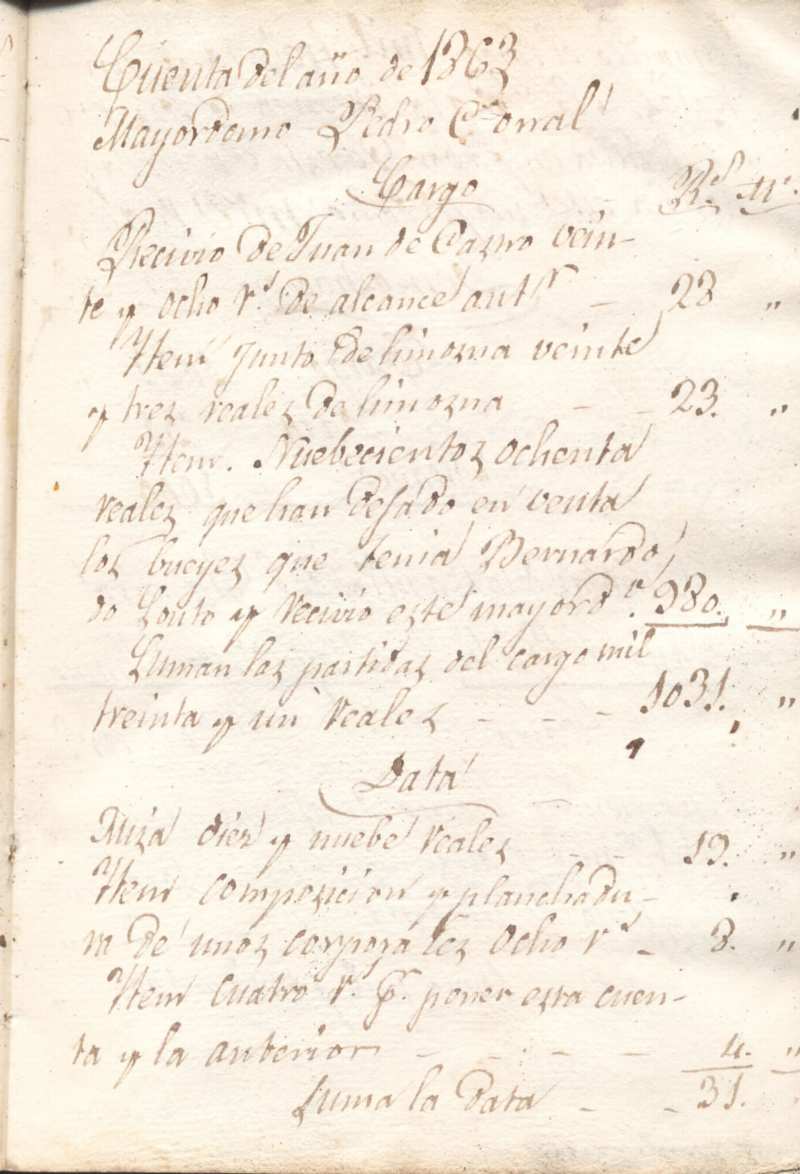 Cuenta del año de 1863
Mayordomo Pedro Corral
Cargo Rs. M.
Recivio de Juan de Castro vein-
te y ocho rs. de alcance antr. - 28 "
Item junto de limozna veinte
y trez realez de limozna - - 23. "
Item. Nuebecientoz ochenta
realez que han dejado en venta
loz bueyez que tenia Bernardo
do Souto y recivio este mayordo. 980. "
Suman laz partidaz del cargo mil
treinta y un realez - - - 1031. "
Data
Miza diez y nuebe realez - - 19. "
Item compozicion y planchadu-
ra de unoz corporalez ocho rs. - 8. "
Item cuatro r. pr. poner ezta cuen-
ta y la anterior - - - - 4. "
Suma la Data - - 31.